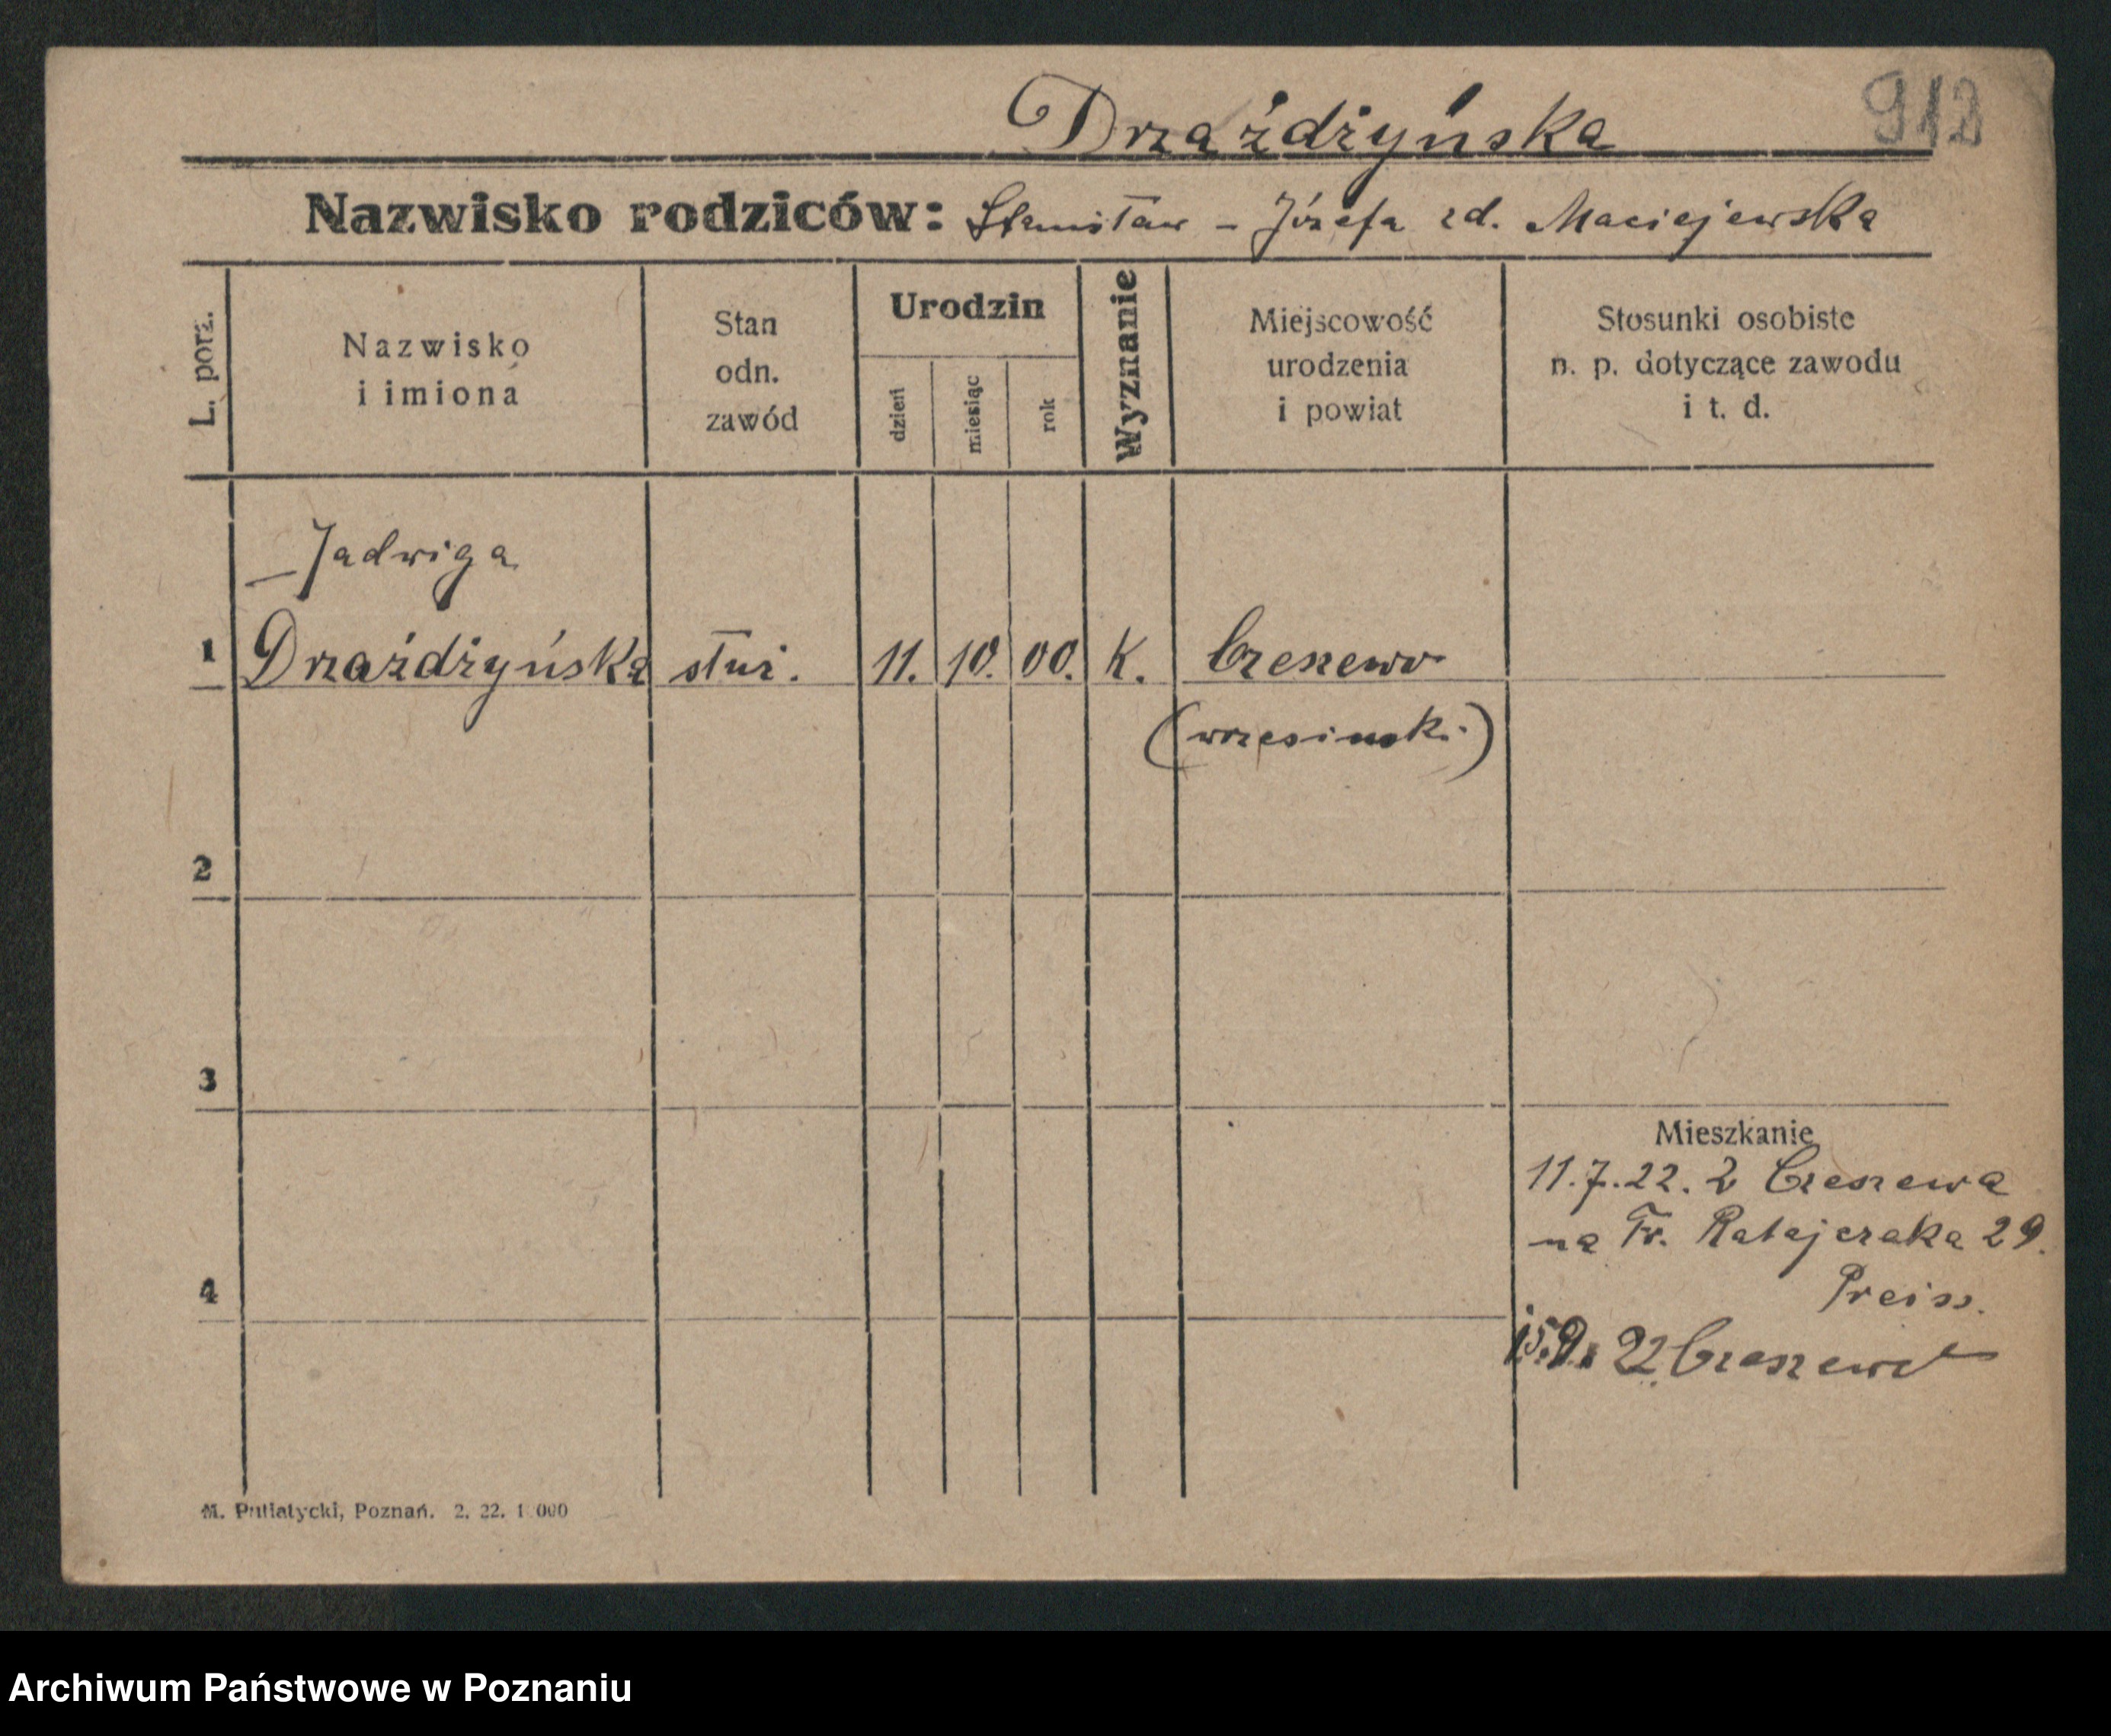 Drzażdżyńska
912
Nazwisko rodziców: Stanisław - Józefa zd. Maciejewska
L. porz.
Nazwisko
i imiona
Stan
odn.
zawód
Urodzin
dzień
miesiąc
rok
Wyznanie
Miejscowość
urodzenia
i powiat
Stosunki osobiste
n. p. dotyczące zawodu
i t. d.
Jadwiga
1 Drzażdżyńska służ. 11. 10. 00. K. Czeszewo
(wrzesiński)
2
3
4
Mieszkanie
11.7.22. z Czeszewa
na Fr. Ratajczaka 29.
Preiss.
15.9. 22 Czeszewo
M. Putiatycki, Poznań. 2. 22.
Archiwum Państwowe w Poznaniu